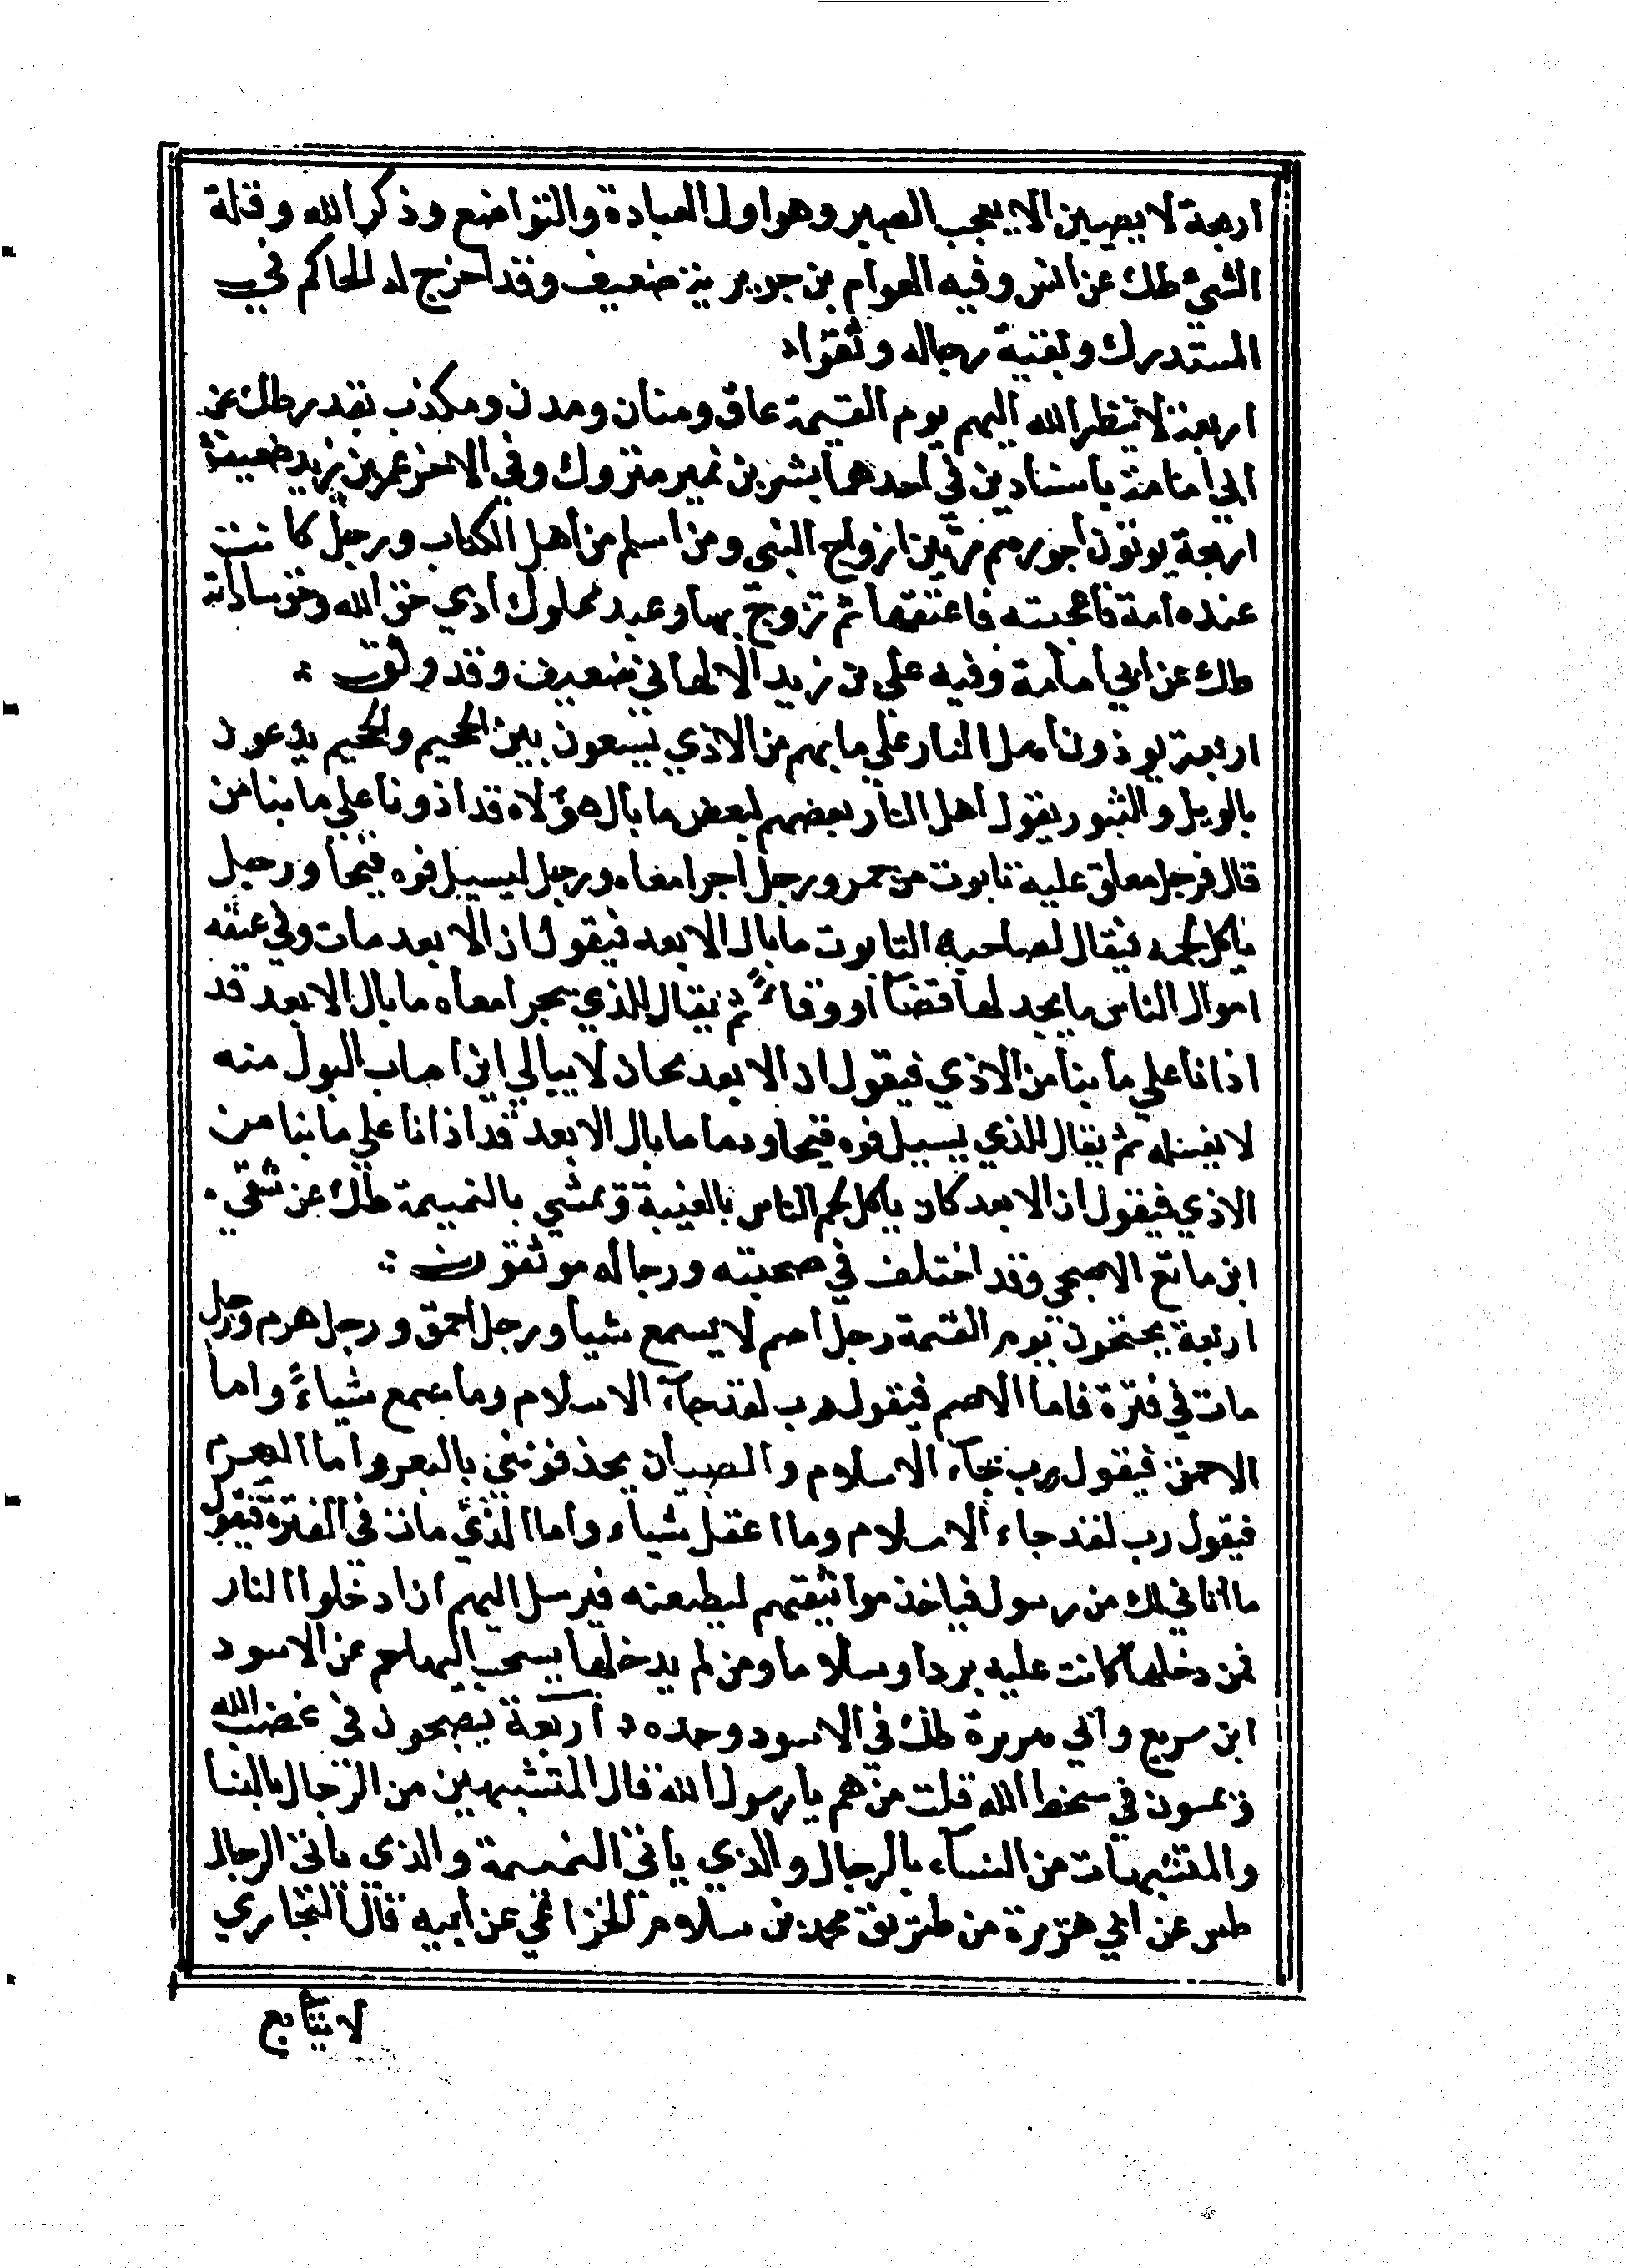 اربعة لا يصبن الا بعجب الصبر وهو اول العبادة والتواضع وذكر الله وقلة
الشيء طك عن انس وفيه العوام بن جويرية ضعيف وقد اخرج له الحاكم في
المستدرك وبقية رجاله وثقوا
اربعة لا ينظر الله اليهم يوم القيمة عاق ومنان ومدمن ومكذب بقدر طك عن
ابي امامة باسنادين في احدهما بشر بن نمير متروك وفي الاخر عمر بن يزيد ضعيف
اربعة يوتون اجورهم مرتين ازواج النبي ومن اسلم من اهل الكتاب ورجل كانت
عنده امة فاعجبته فاعتقها ثم تزوج بها وعبد مملوك ادي حق الله وحق ساداته
طك عن ابي امامة وفيه علي بن زيد الالهاني ضعيف وقد وثق
اربعة يوذون اهل النار علي ما بهم من الاذي يسعون بين الحميم والجحيم يدعون
بالويل والثبور يقول اهل النار بعضهم لبعض ما بال هؤلاء قد اذونا علي ما بنا من
قال فرجل معلق عليه تابوت من جمر ورجل اجر امعاه ورجل ليسيل فوه قيحا ورجل
ياكل لحمه فيقال لصاحب التابوت ما بال الابعد فيقول ان الابعد مات وفي عنقه
اموال الناس ما يجد لها قضآ او وفاء ثم يقال للذي يجر امعاه ما بال الابعد قد
اذانا علي ما بنا من الاذي فيقول ان الابعد كان لا يبالي اين اصاب البول منه
لا يغسله ثم يقال للذي يسيل فوه قيحا ودما ما بال الابعد قد اذانا علي ما بنا من
الاذي فيقول ان الابعد كان ياكل لحم الناس بالغيبة ويمشي بالنميمة طك عن شفي
ابن ماتع الاصبحي وقد اختلف في صحبته ورجاله موثقون
اربعة يحتجون يوم القيمة رجل اصم لا يسمع شيا ورجل احمق ورجل هرم ورجل
مات في فترة فاما الاصم فيقول رب لقد جآء الاسلام وما اسمع شياءً واما
الاحمق فيقول رب جآء الاسلام والصبيان يحذفونني بالبعر واما الهرم
فيقول رب لقد جاء الاسلام وما اعقل شياء واما الذي مات في الفترة فيقول
ما اتاني لك من رسول فياخذ مواثيقهم ليطيعنه فيرسل اليهم ان ادخلوا النار
فمن دخلها كانت عليه بردا وسلاما ومن لم يدخلها يسحب اليها حم عن الاسود
ابن سريع وابي هريرة طك في الاسود وحده اربعة يصبحون في غضب الله
ويمسون في سخط الله قلت من هم يا رسول الله قال المتشبهين من الرجال بالنسا
والمتشبهات من النسآء بالرجال والذي ياتي البهيمة والذي ياتي الرجال
طس عن ابي هريرة من طريق محمد بن سلام الخزاعي عن ابيه قال البخاري
لا يتابع